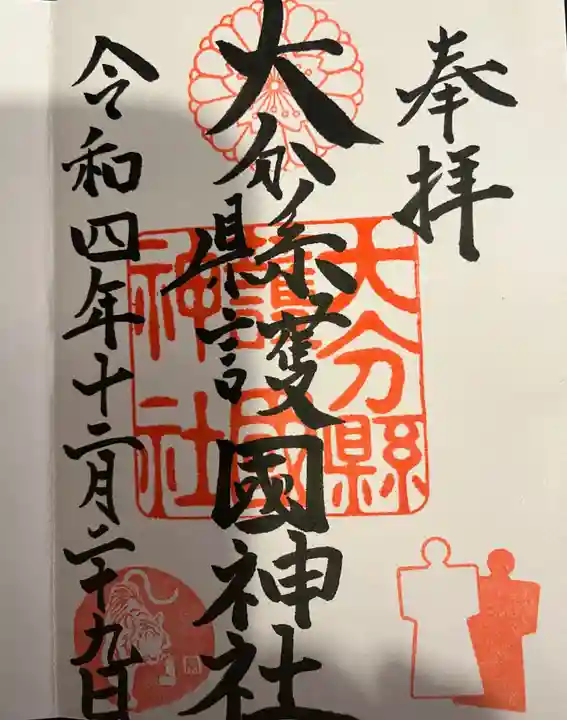 奉拝
大分縣護國神社
大分縣護國神社
令和四年十二月二十九日